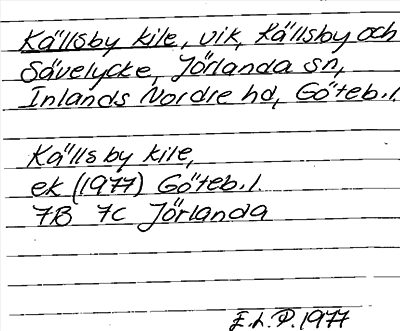 Källsby kile, vik, Källsby och
Sävelycke, Jörlanda sn,
Inlands Nordre hd, Göteb.l.
Källsby kile,
ek (1977) Göteb.l.
7B 7C Jörlanda
E.L.P. 1977